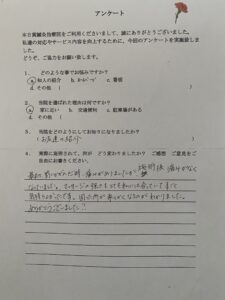 アンケート
本日実鍼灸治療院をご利用くださいまして、誠にありがとうございました。
私達の対応やサービス内容を向上するために、今回のアンケートを実施致しました。
どうぞ、ご協力をお願い致します。
1. どのような事でお悩みですか？
a. 知人の紹介 b. c. 看板
d. その他（ ）
2. 当院を選ばれた理由は何ですか？
a. 家に近い b. 交通便利 c. 駐車場がある
d. その他（ ）
3. 当院をどのようにしてお知りになりましたか？
（お友達の紹介 ）
4. 実際に施術されて、何が どう変わりましたか？ ご感想 ご意見をご自由にお書きください。
施術後 痛みがなく
なりました。マッサージの強さもとても私には合っていて
気持ちよかったです。
ありがとうございました！